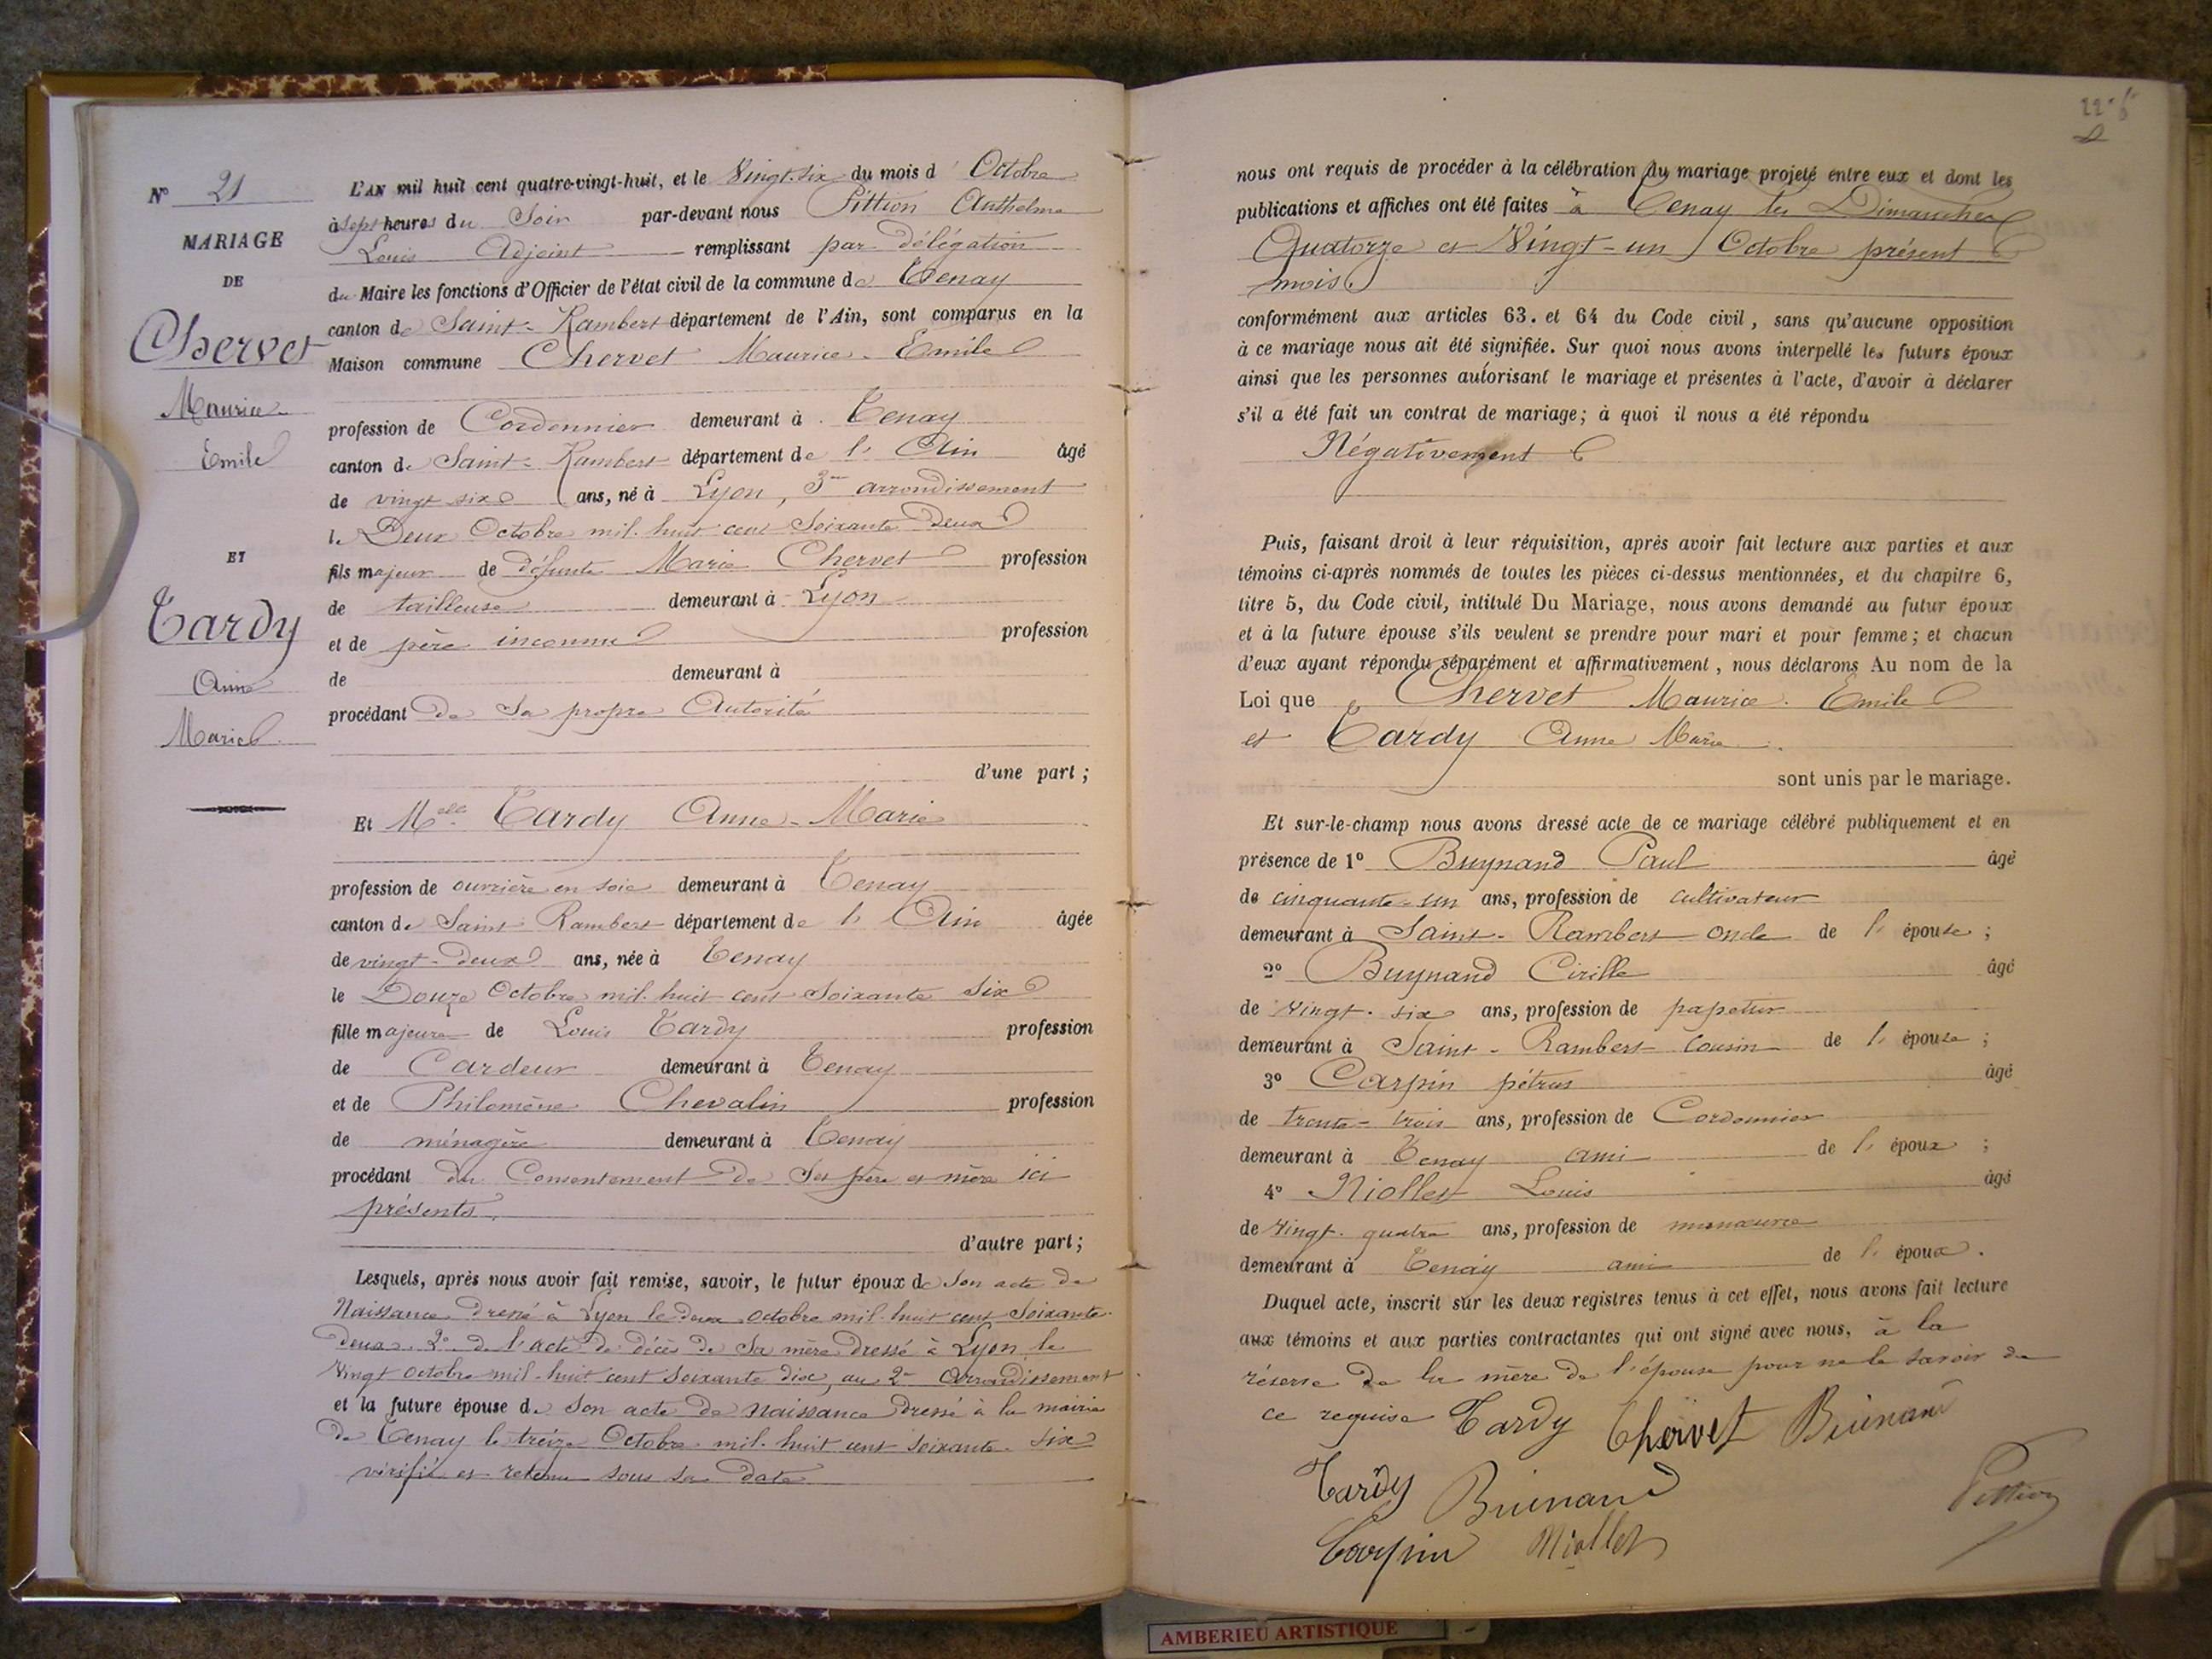 N° 21
MARIAGE
DE
Chervet
Maurice
Emile
ET
Tardy
Anne
Marie
L'AN mil huit cent quatre-vingt-huit, et le Vingt-six du mois d' Octobre
à sept heures du Soir par-devant nous Pittion Anthelme
Louis Adjoint remplissant par Délégation
du Maire les fonctions d'Officier de l'état civil de la commune de Tenay
canton de Saint-Rambert département de l'Ain, sont comparus en la
Maison commune Chervet Maurice-Emile
profession de Cordonnier demeurant à Tenay
canton de Saint-Rambert département de l'Ain âgé
de vingt six ans, né à Lyon, 3me arrondissement
le Deux Octobre mil huit cent Soixante Deux
fils majeur de défunte Marie Chervet profession
de tailleuse demeurant à Lyon
et de père inconnu profession
de demeurant à
procédant de Sa propre Autorité
d'une part;
Et Melle Tardy Anne-Marie
profession de ouvrière en soie demeurant à Tenay
canton de Saint Rambert département de l'Ain âgée
de vingt-deux ans, née à Tenay
le Douze Octobre mil huit cent Soixante Six
fille majeure de Louis Tardy profession
de Cardeur demeurant à Tenay
et de Philomène Chevalin profession
de ménagère demeurant à Tenay
procédant du Consentement De Ses père et mère ici
présents.
d'autre part;
Lesquels, après nous avoir fait remise, savoir, le futur époux de Son acte de
Naissance dressé à Lyon le deux octobre mil huit cent Soixante
deux 2° de l'acte de décès de Sa mère dressé à Lyon le
Vingt octobre mil huit cent Soixante dix, au 2me Arrondissement
et la future épouse de Son acte de Naissance Dressé à la mairie
de Tenay le treize Octobre mil huit cent Soixante Six
vérifié et retenu sous sa date
nous ont requis de procéder à la célébration du mariage projeté entre eux et dont les
publications et affiches ont été faites à Tenay les Dimanches
Quatorze et Vingt-un Octobre présent
mois
conformément aux articles 63. et 64 du Code civil, sans qu'aucune opposition
à ce mariage nous ait été signifiée. Sur quoi nous avons interpellé les futurs époux
ainsi que les personnes autorisant le mariage et présentes à l'acte, d'avoir à déclarer
s'il a été fait un contrat de mariage; à quoi il nous a été répondu
Négativement
Puis, faisant droit à leur réquisition, après avoir fait lecture aux parties et aux
témoins ci-après nommés de toutes les pièces ci-dessus mentionnées, et du chapitre 6,
titre 5, du Code civil, intitulé Du Mariage, nous avons demandé au futur époux
et à la future épouse s'ils veulent se prendre pour mari et pour femme; et chacun
d'eux ayant répondu séparément et affirmativement, nous déclarons Au nom de la
Loi que Chervet Maurice. Emile
et Tardy Anne Marie
sont unis par le mariage.
Et sur-le-champ nous avons dressé acte de ce mariage célébré publiquement et en
présence de 1° Buynand Paul âgé
de cinquante-un ans, profession de cultivateur
demeurant à Saint-Rambert oncle de l'épouse;
2° Buynand Cirille âgé
de Vingt-six ans, profession de papetier
demeurant à Saint-Rambert Cousin de l'épouse;
3° Carpin pétrus âgé
de trente-trois ans, profession de Cordonnier
demeurant à Tenay ami de l'époux;
4° Niollet Louis âgé
de Vingt-quatre ans, profession de manoeuvre
demeurant à Tenay ami de l'époux.
Duquel acte, inscrit sur les deux registres tenus à cet effet, nous avons fait lecture
aux témoins et aux parties contractantes qui ont signé avec nous, à la
réserve de la mère de l'épouse pour ne le savoir de
ce requise Tardy Chervet Buinand
Tardy Buinand
Carpin Niollet Pittion
AMBERIEU ARTISTIQUE